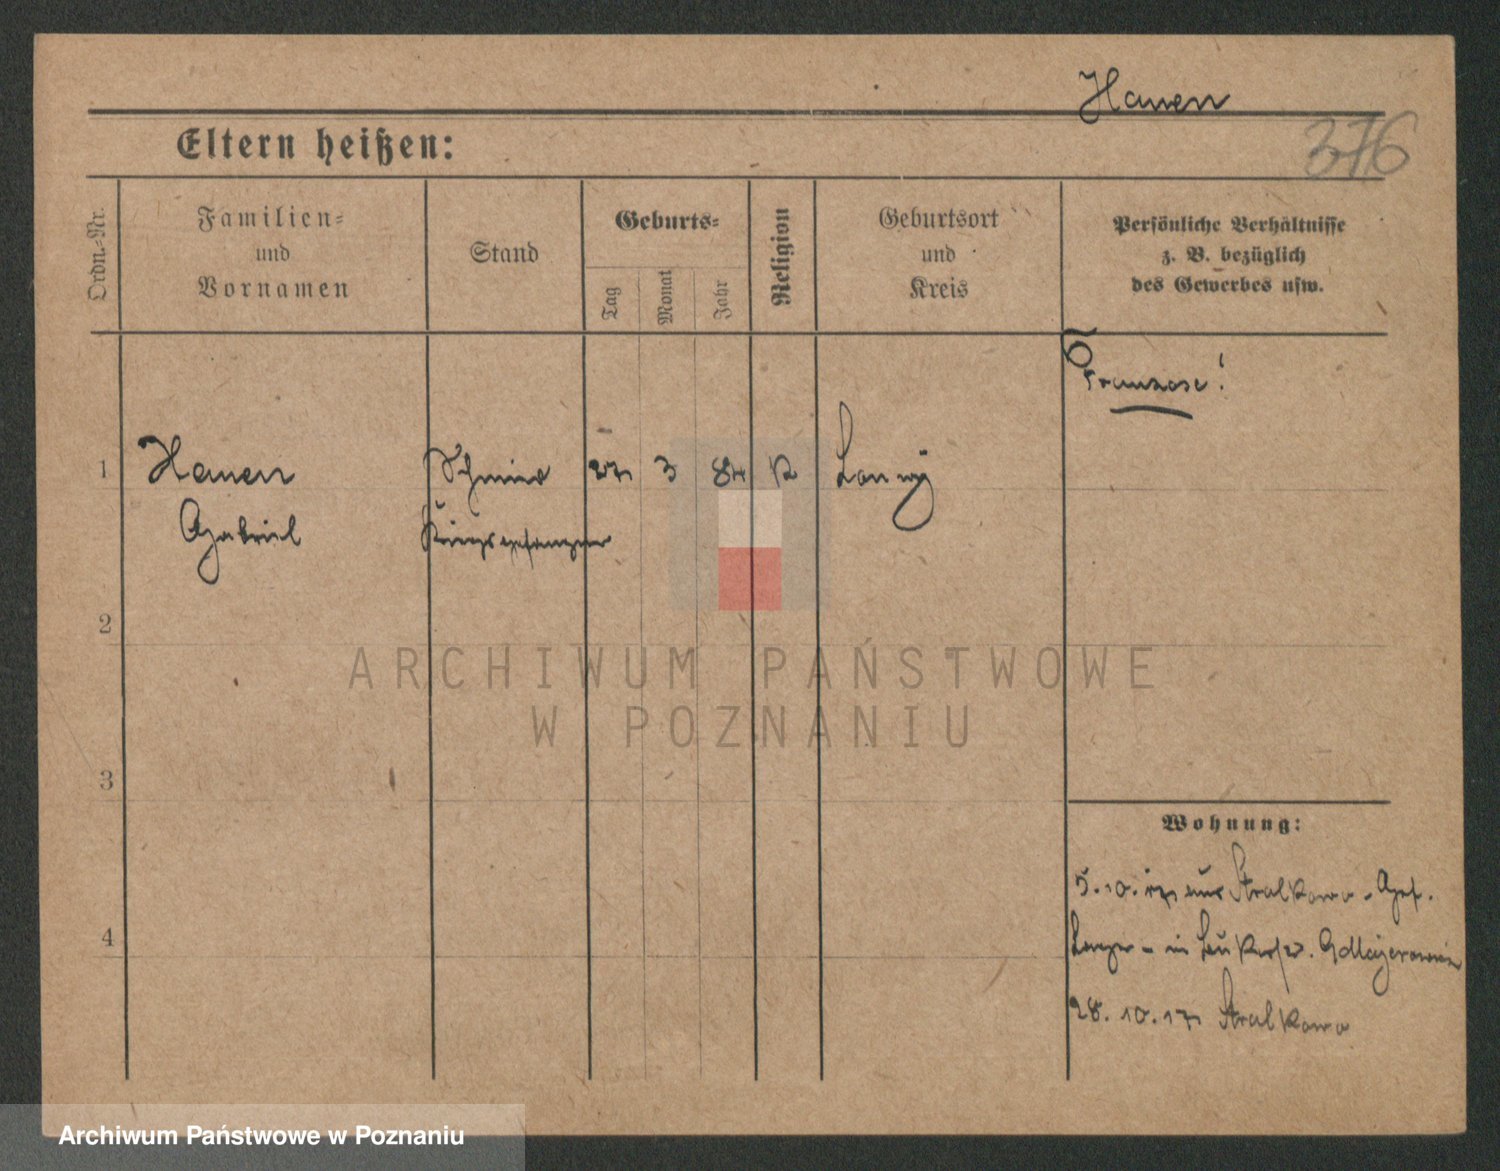 Hanen
376
Eltern heißen:
Ordn.-Nr.
Familien-
und
Vornamen
Stand
Geburts-
Tag
Monat
Jahr
Religion
Geburtsort
und
Kreis
Persönliche Verhältnisse
z. B. bezüglich
des Gewerbes usw.
Franzose!
1
Hanen
Schmied
27
3
84
K
Gabriel
Kriegsgefangener
2
ARCHIWUM PAŃSTWOWE
W POZNANIU
3
Wohnung:
5.10.17 aus Stralkowo - Gef.
4
Lager - in
28.10.17 Stralkowo
Archiwum Państwowe w Poznaniu